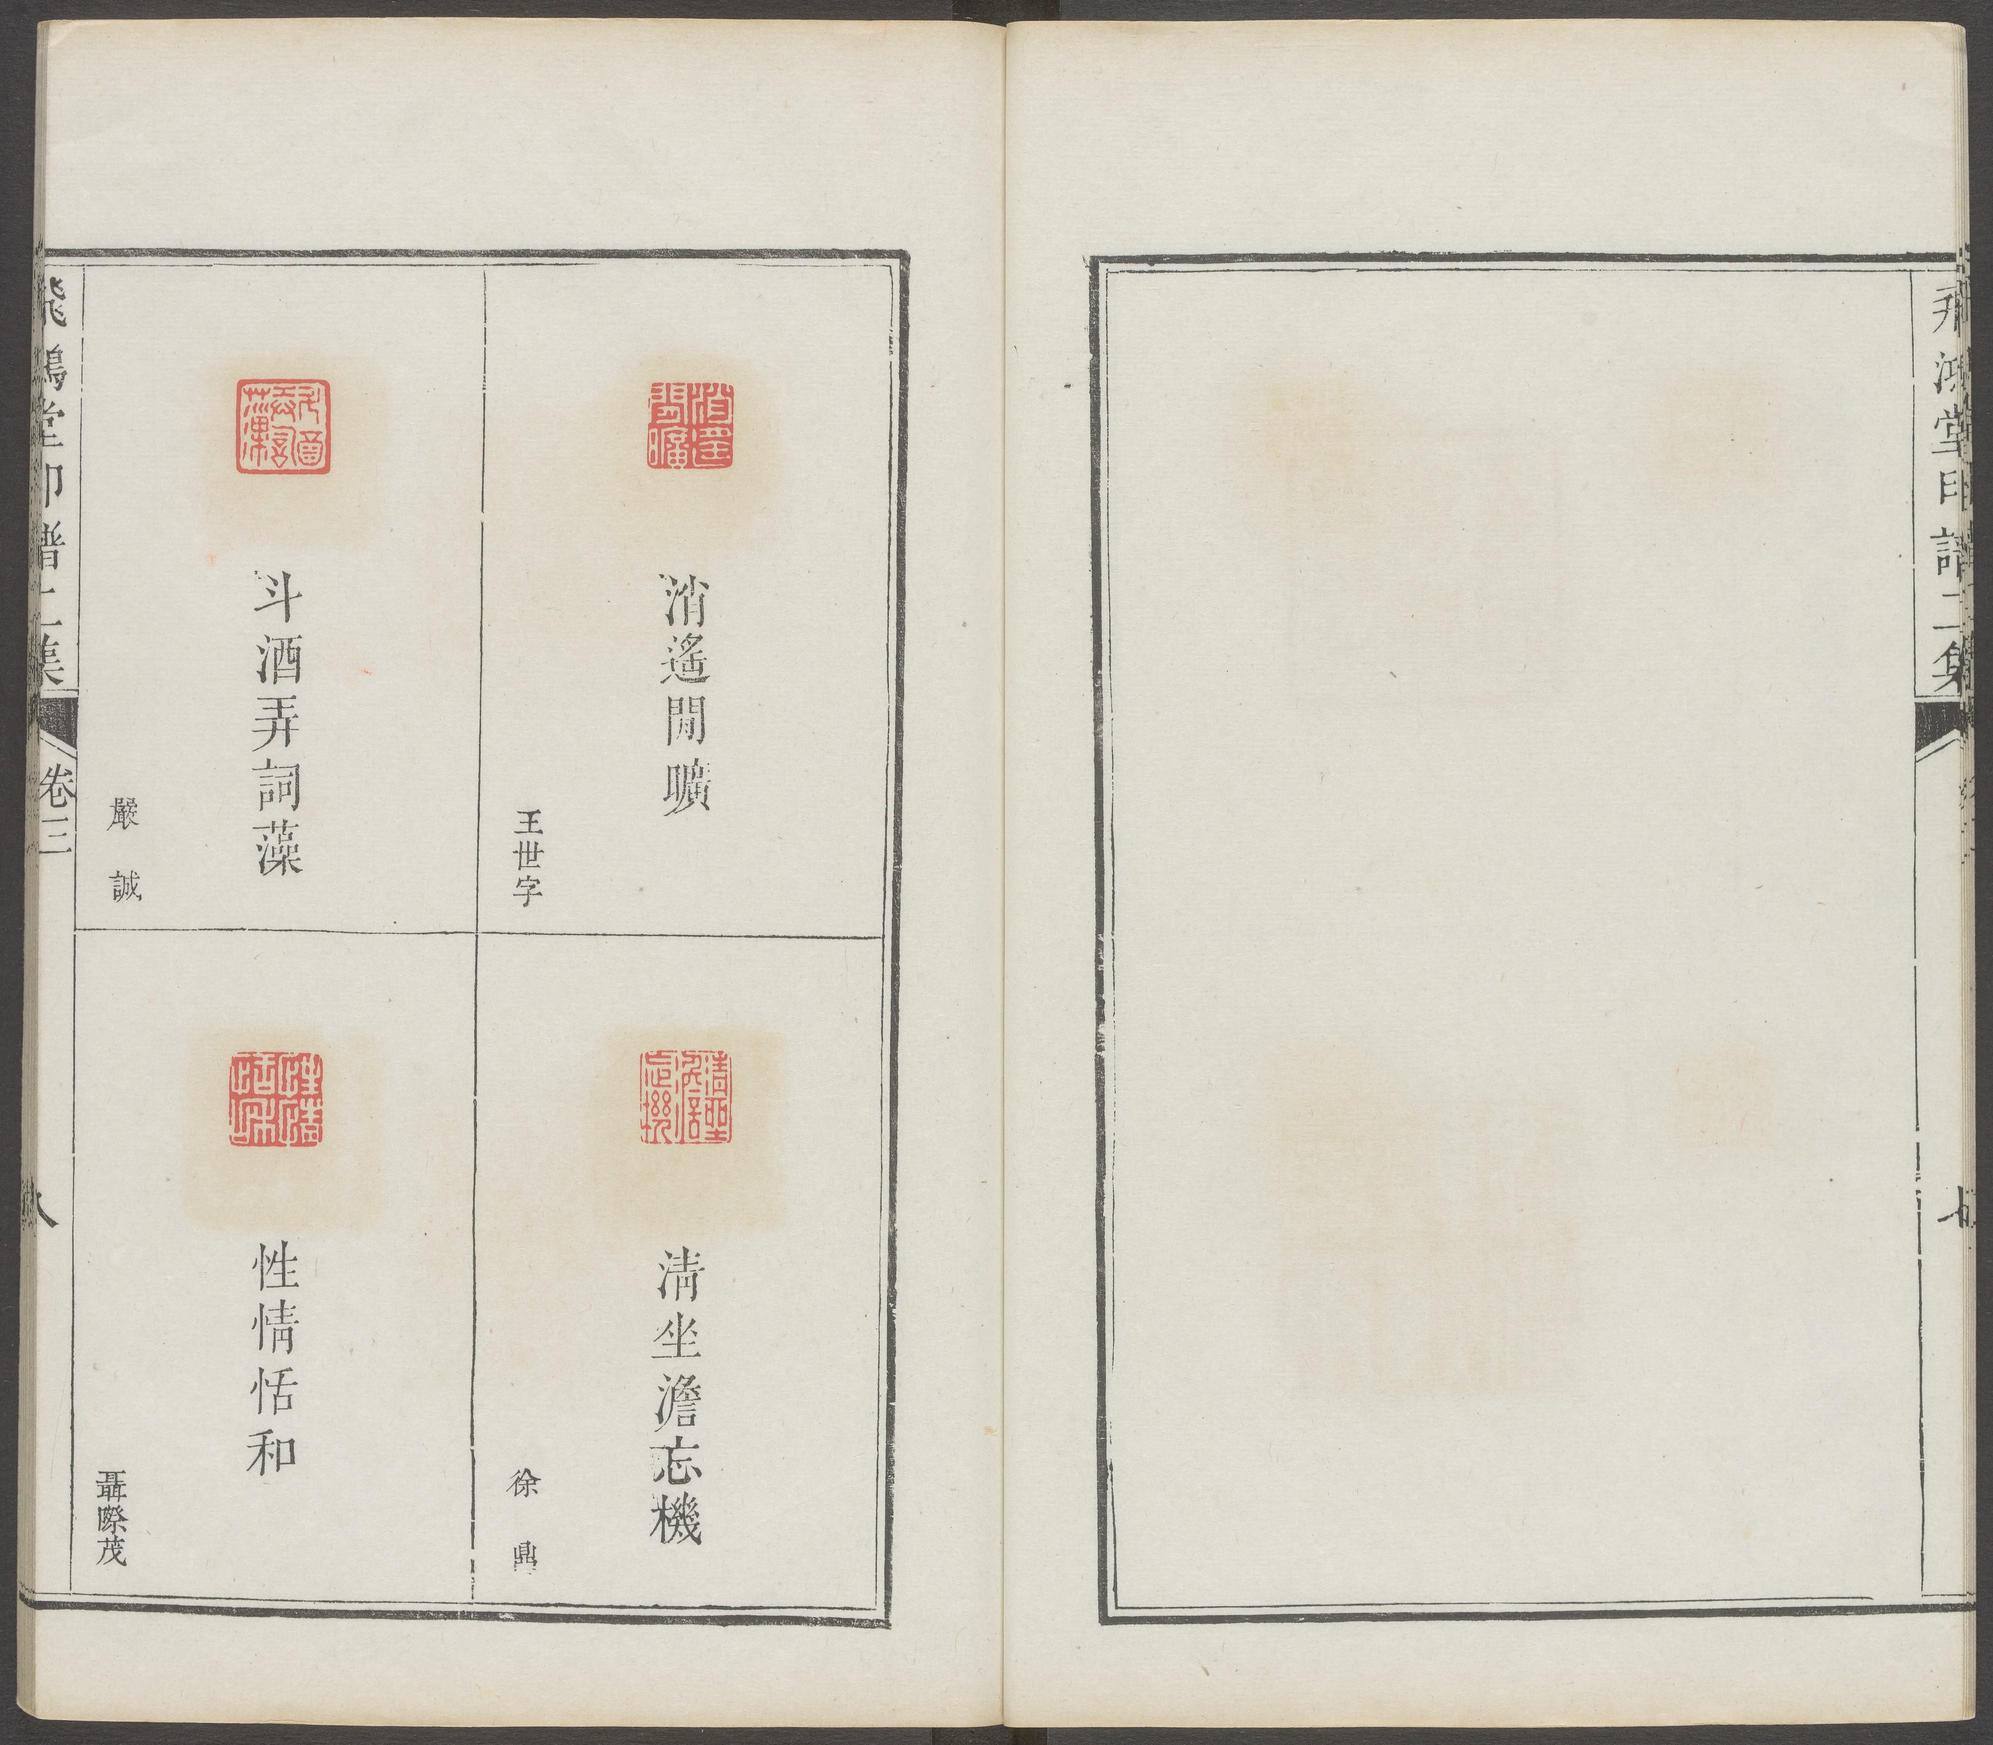 飛鴻堂印譜二集
七
消遙閒曠
王世字
清坐澹忘機
徐鼎
斗酒弄詞藻
嚴誠
性情恬和
聶際茂
飛鴻堂印譜二集
卷三
八